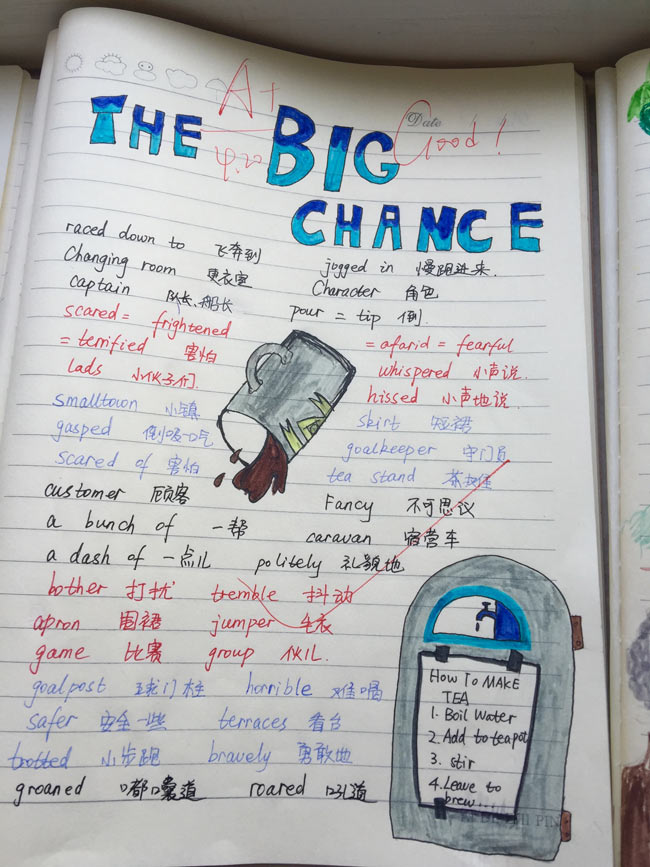 A+
Date
THE BIG Good!
4.20
CHANCE
raced down to 飞奔到
jogged in 慢跑进来.
Changing room 更衣室
Character 角色
captain 队长、船长
pour = tip 倒.
scared = frightened
= terrified 害怕
= afarid = fearful
lads 小伙子们.
whispered 小声说.
smalltown 小镇
hissed 小声地说.
gasped 倒吸口气
skirt 短裙
scared of 害怕
goalkeeper 守门员
tea stand
customer 顾客
Fancy 不可思议
a bunch of 一帮
caravan 宿营车
a dash of 一点儿 politely 礼貌地
bother 打扰 tremble 抖动
apron 围裙 jumper 毛衣
game 比赛 group 伙儿.
goalpost 球门柱 horrible 难喝
safer 安全一些 terraces 看台
trotted 小步跑 bravely 勇敢地
groaned 嘟囔道 roared 吼道
HOW TO MAKE
TEA
1. Boil Water
2. Add to teapot
3. stir
4. Leave to
brew...